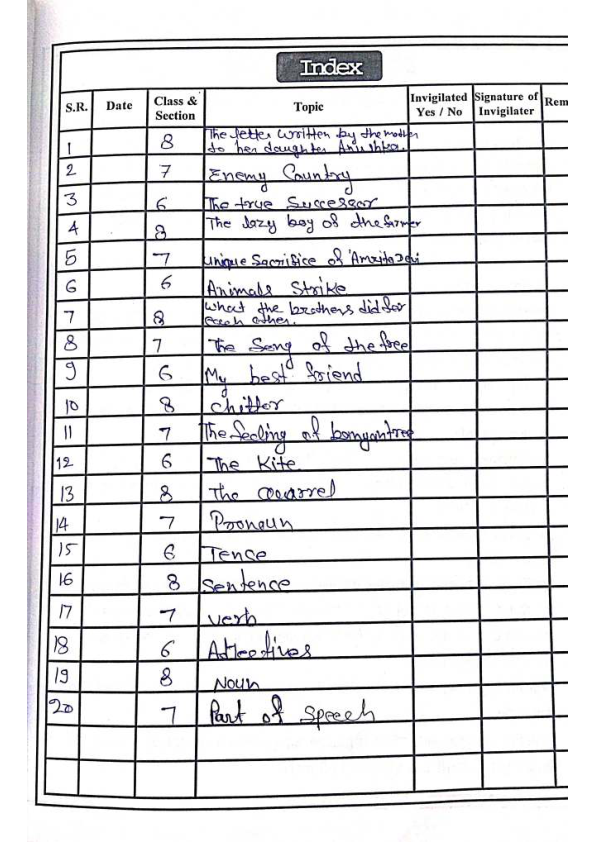 Index
S.R. Date Class & Section Topic Invigilated Yes / No Signature of Invigilater Rem
1 8 The letter written by the mother
to her daughter Anushka.
2 7 Enemy Country
3 6 The true Successor
4 8 The lazy boy of the farmer
5 7 unique Sacrifice of 'Amrita Devi
6 6 Animals Strike
7 8 what the brothers did for
each other.
8 7 The Song of the free
9 6 My best friend
10 8 Chittor
11 7 The feeling of
12 6 The Kite
13 8 The
14 7 Pronoun
15 6 Tence
16 8 Sentence
17 7 verb
18 6
19 8 Noun
20 7 Part of Speech